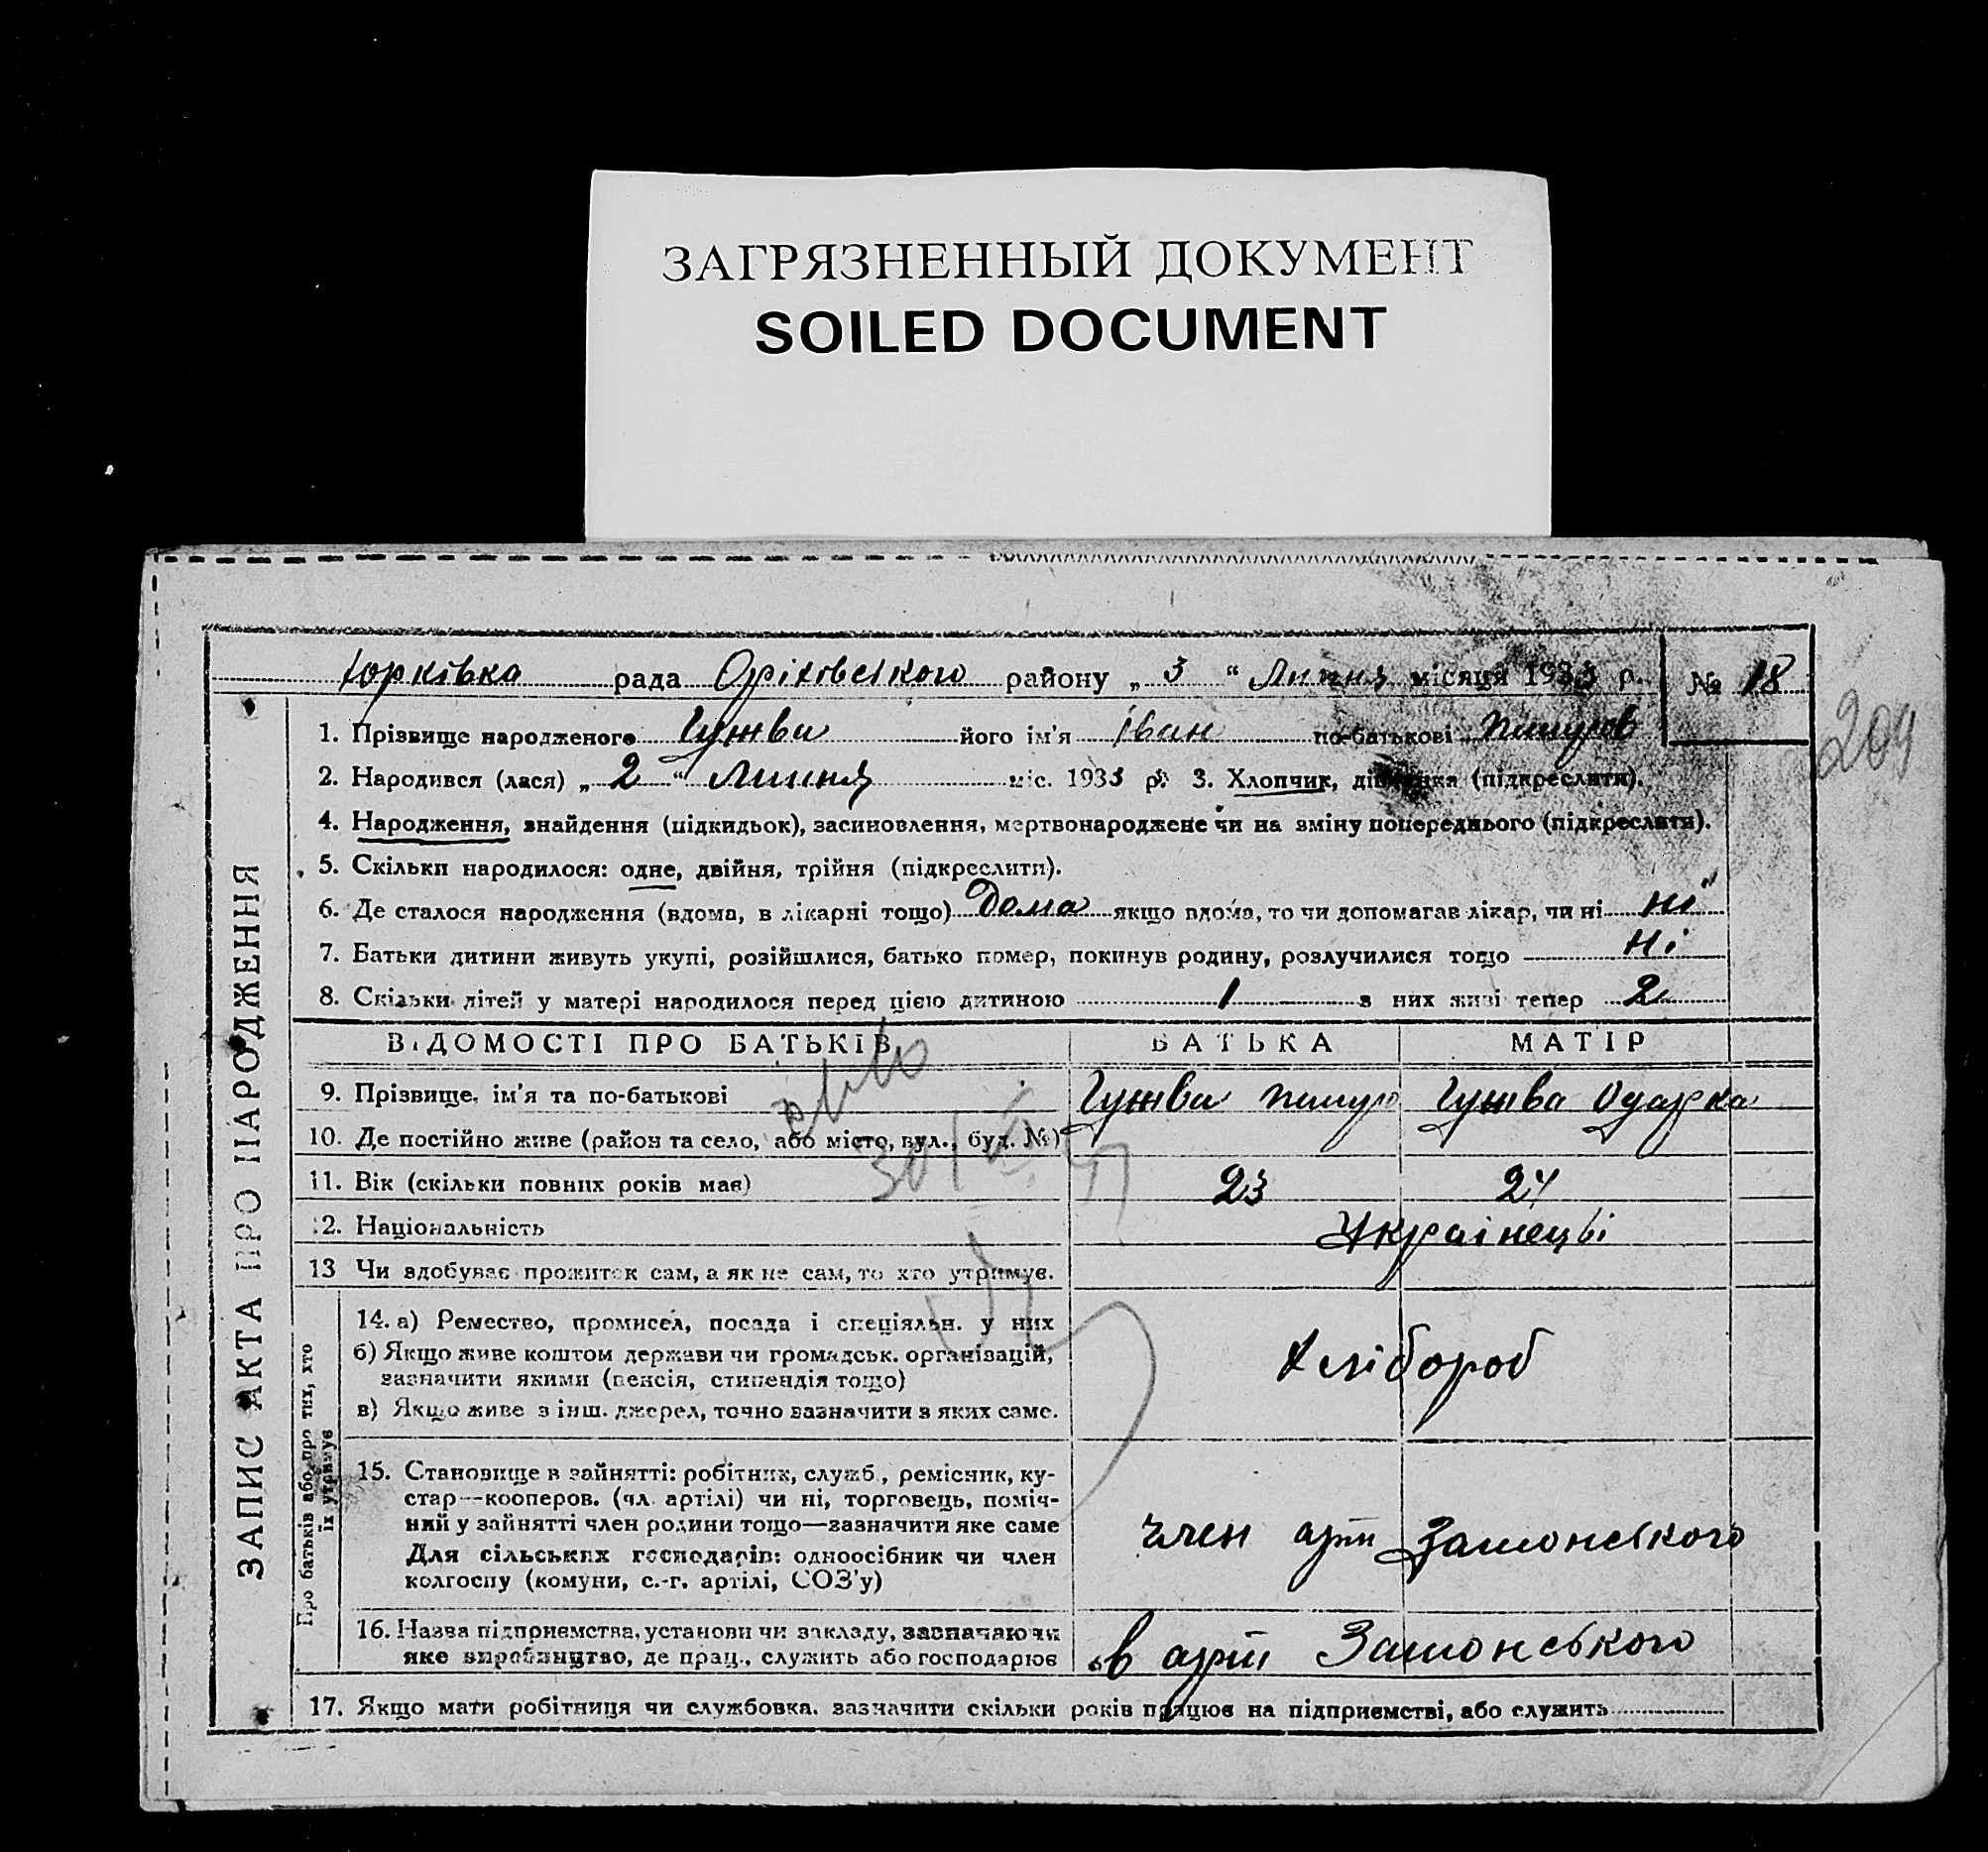 ЗАГРЯЗНЕННЫЙ ДОКУМЕНТ
SOILED DOCUMENT
Юрківка рада Оріхівського району „ 3 “ Липня місяця 1933 р. № 18
209
1. Прізвище народженого Гужва його ім'я Іван по-батькові
2. Народився (лася) „ 2 “ Липня міс. 1933 р. 3. Хлопчик, дівчинка (підкреслити).
4. Народження, знайдення (підкидьок), засиновлення, мертвонароджене чи на зміну попереднього (підкреслити).
5. Скільки народилося: одне, двійня, трійня (підкреслити).
6. Де сталося народження (вдома, в лікарні тощо) Дома якщо вдома, то чи допомагав лікар, чи ні ні
7. Батьки дитини живуть укупі, розійшлися, батько помер, покинув родину, розлучилися тощо ні
8. Скільки дітей у матері народилося перед цією дитиною 1 з них живі тепер 2
ВІДОМОСТІ ПРО БАТЬКІВ БАТЬКА МАТІР
9. Прізвище, ім'я та по-батькові Гужва Гужва Одарка
10. Де постійно живе (район та село, або місто, вул., буд. №)
11. Вік (скільки повних років має) 23 24
12. Національність Українецьві
13 Чи здобуває прожиток сам, а як не сам, то хто утримує.
14. а) Ремество, промисел, посада і спеціяльн. у них
б) Якщо живе коштом держави чи громадськ. організацій,
зазначити якими (пенсія, стипендія тощо)
в) Якщо живе з інш. джерел, точно зазначити з яких саме.
Хлібороб
15. Становище в зайнятті: робітник, служб., ремісник, ку-
стар—кооперов. (чл. артілі) чи ні, торговець, поміч-
ний у зайнятті член родини тощо—зазначити яке саме
Для сільських господарів: одноосібник чи член
колгоспу (комуни, с.-г. артілі, СОЗ'у)
член арт Затонського
16. Назва підприємства, установи чи закладу, зазначаючи
яке виробництво, де прац., служить або господарює
в арт Затонського
17. Якщо мати робітниця чи службовка, зазначити скільки років працює на підприємстві, або служить
ЗАПИС АКТА ПРО НАРОДЖЕННЯ
Про батьків або про тих, хто
їх утримує